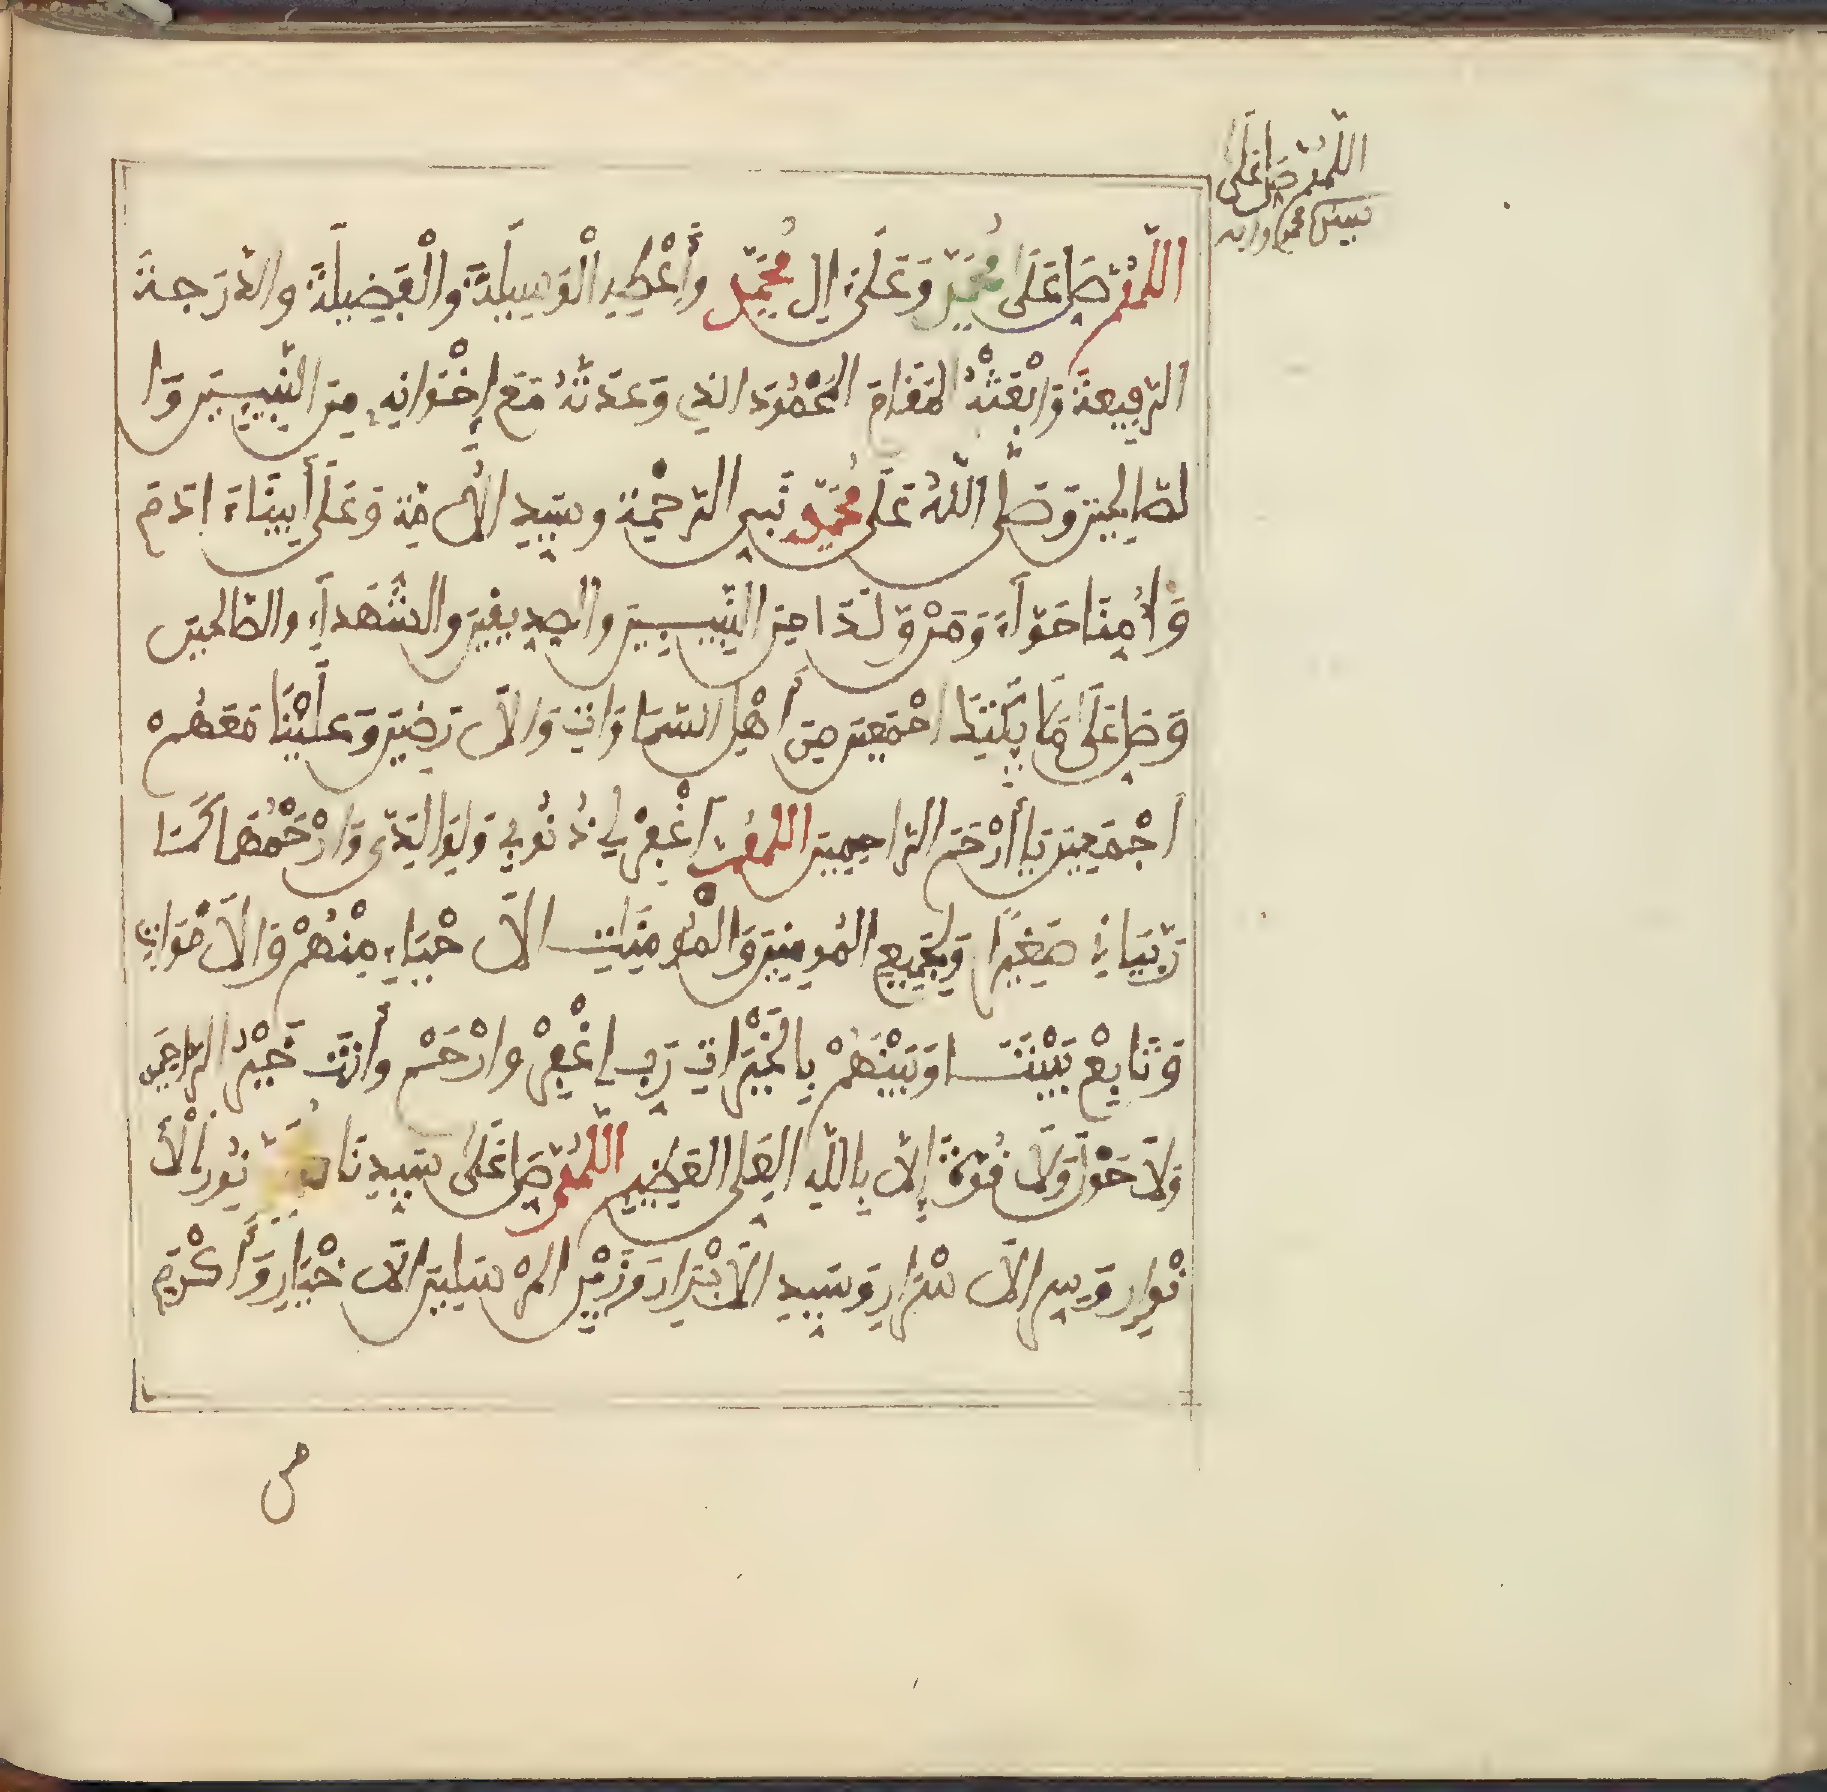 اللهم صل على
سيدنا محمد واله
اللَّهُمَّ صَلِّ عَلَى مُحَمَّدٍ وَعَلَى ءَالِ مُحَمَّدٍ وَأَعْطِهِ الْوَسِيلَةَ وَالْفَضِيلَةَ وَالدَّرَجَةَ
الرَّفِيعَةَ وَابْعَثْهُ الْمَقَامَ الْمَحْمُودَ الَّذِي وَعَدْتَهُ مَعَ إِخْوَانِهِ مِنَ النَّبِيِّينَ وَا
لصَّالِحِينَ وَصَلَّى اللَّهُ عَلَى مُحَمَّدٍ نَبِيِّ الرَّحْمَةِ وَسَيِّدِ الْأُمَّةِ وَعَلَى أَبِينَا ءَادَمَ
وَأُمِّنَا حَوَّاءَ وَمَنْ وَلَدَا مِنَ النَّبِيِّينَ وَالصِّدِّيقِينَ وَالشُّهَدَاءِ وَالصَّالِحِينَ
وَصَلِّ عَلَى مَلَائِكَتِكَ أَجْمَعِينَ مِنْ أَهْلِ السَّمَاوَاتِ وَالْأَرَضِينَ وَعَلَيْنَا مَعَهُمْ
أَجْمَعِينَ يَا أَرْحَمَ الرَّاحِمِينَ اللَّهُمَّ اغْفِرْ لِي ذُنُوبِي وَلِوَالِدَيَّ وَارْحَمْهُمَا كَمَا
رَبَّيَانِي صَغِيرًا وَلِجَمِيعِ الْمُومِنِينَ وَالْمُومِنَاتِ الْأَحْيَاءِ مِنْهُمْ وَالْأَمْوَاتِ
وَتَابِعْ بَيْنَنَا وَبَيْنَهُمْ بِالْخَيْرَاتِ رَبِّ اغْفِرْ وَارْحَمْ وَأَنْتَ خَيْرُ الرَّاحِمِينَ
وَلَا حَوْلَ وَلَا قُوَّةَ إِلَّا بِاللَّهِ الْعَلِيِّ الْعَظِيمِ اللَّهُمَّ صَلِّ عَلَى سَيِّدِنَا مُحَمَّدٍ نُورِ الْأَ
نْوَارِ وَسِرِّ الْأَسْرَارِ وَسَيِّدِ الْأَبْرَارِ وَزَيْنِ الْمُرْسَلِينَ الْأَخْيَارِ وَأَكْرَمِ